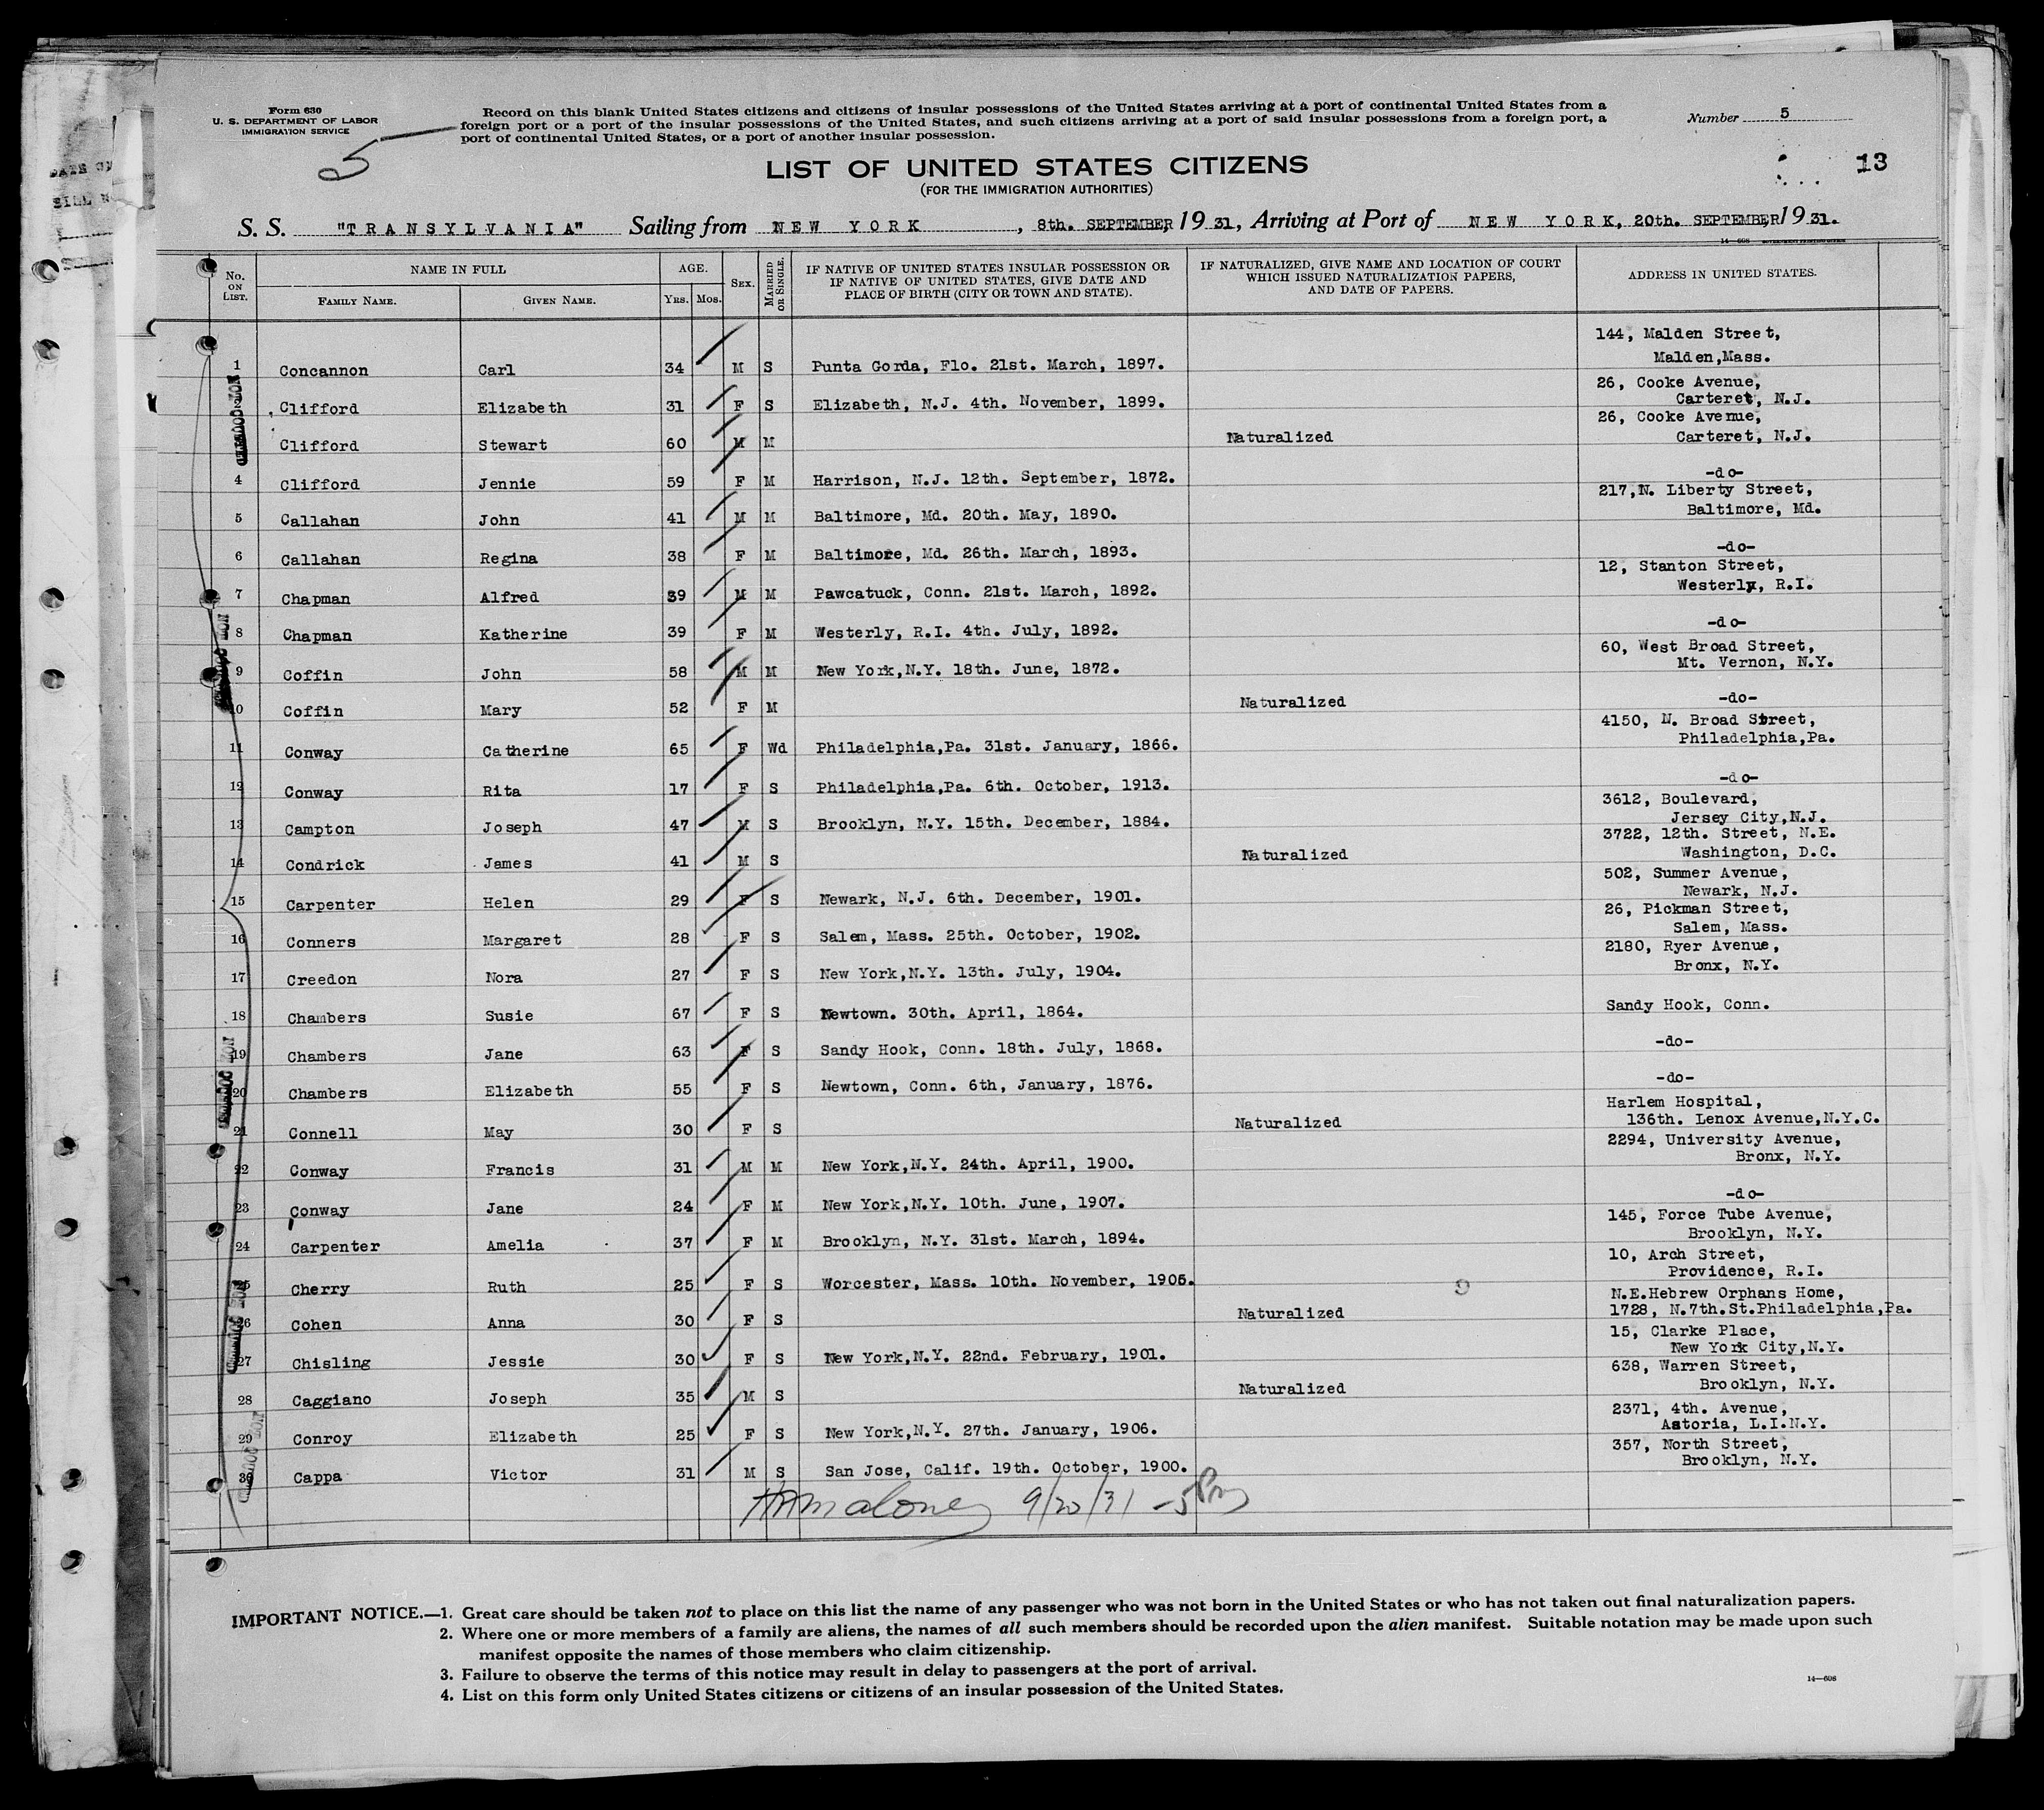 Form 630
U. S. DEPARTMENT OF LABOR
IMMIGRATION SERVICE
5
Record on this blank United States citizens and citizens of insular possessions of the United States arriving at a port of continental United States from a
foreign port or a port of the insular possessions of the United States, and such citizens arriving at a port of said insular possessions from a foreign port, a
port of continental United States, or a port of another insular possession.
Number 5
13
LIST OF UNITED STATES CITIZENS
(FOR THE IMMIGRATION AUTHORITIES)
S. S. "TRANSYLVANIA" Sailing from NEW YORK, 8th. SEPTEMBER, 19 31, Arriving at Port of NEW YORK, 20th. SEPTEMBER, 19 31.
No. ON LIST. NAME IN FULL FAMILY NAME. GIVEN NAME. AGE. YRS. MOS. SEX. MARRIED OR SINGLE. IF NATIVE OF UNITED STATES INSULAR POSSESSION OR IF NATIVE OF UNITED STATES, GIVE DATE AND PLACE OF BIRTH (CITY OR TOWN AND STATE). IF NATURALIZED, GIVE NAME AND LOCATION OF COURT WHICH ISSUED NATURALIZATION PAPERS, AND DATE OF PAPERS. ADDRESS IN UNITED STATES.
144, Malden Street,
1 Concannon Carl 34 M S Punta Gorda, Flo. 21st. March, 1897. Malden,Mass.
26, Cooke Avenue,
Clifford Elizabeth 31 F S Elizabeth, N.J. 4th. November, 1899. Carteret, N.J.
26, Cooke Avenue,
Clifford Stewart 60 M M Naturalized Carteret, N.J.
4 Clifford Jennie 59 F M Harrison, N.J. 12th. September, 1872. -do-
217,N. Liberty Street,
5 Callahan John 41 M M Baltimore, Md. 20th. May, 1890. Baltimore, Md.
6 Callahan Regina 38 F M Baltimore, Md. 26th. March, 1893. -do-
12, Stanton Street,
7 Chapman Alfred 39 M M Pawcatuck, Conn. 21st. March, 1892. Westerly, R.I.
8 Chapman Katherine 39 F M Westerly, R.I. 4th. July, 1892. -do-
60, West Broad Street,
9 Coffin John 58 M M New York,N.Y. 18th. June, 1872. Mt. Vernon, N.Y.
10 Coffin Mary 52 F M Naturalized -do-
4150, N. Broad Street,
11 Conway Catherine 65 F Wd Philadelphia,Pa. 31st. January, 1866. Philadelphia,Pa.
12 Conway Rita 17 F S Philadelphia,Pa. 6th. October, 1913. -do-
3612, Boulevard,
13 Campton Joseph 47 M S Brooklyn, N.Y. 15th. December, 1884. Jersey City,N.J.
3722, 12th. Street, N.E.
14 Condrick James 41 M S Naturalized Washington, D.C.
502, Summer Avenue,
15 Carpenter Helen 29 F S Newark, N.J. 6th. December, 1901. Newark, N.J.
26, Pickman Street,
16 Conners Margaret 28 F S Salem, Mass. 25th. October, 1902. Salem, Mass.
2180, Ryer Avenue,
17 Creedon Nora 27 F S New York,N.Y. 13th. July, 1904. Bronx, N.Y.
18 Chambers Susie 67 F S Newtown. 30th. April, 1864. Sandy Hook, Conn.
19 Chambers Jane 63 F S Sandy Hook, Conn. 18th. July, 1868. -do-
20 Chambers Elizabeth 55 F S Newtown, Conn. 6th, January, 1876. -do-
Harlem Hospital,
21 Connell May 30 F S Naturalized 136th. Lenox Avenue,N.Y.C.
2294, University Avenue,
22 Conway Francis 31 M M New York,N.Y. 24th. April, 1900. Bronx, N.Y.
23 Conway Jane 24 F M New York,N.Y. 10th. June, 1907. -do-
145, Force Tube Avenue,
24 Carpenter Amelia 37 F M Brooklyn, N.Y. 31st. March, 1894. Brooklyn, N.Y.
10, Arch Street,
25 Cherry Ruth 25 F S Worcester, Mass. 10th. November, 1905. Providence, R.I.
9
N.E.Hebrew Orphans Home,
26 Cohen Anna 30 F S Naturalized 1728, N.7th.St.Philadelphia,Pa.
15, Clarke Place,
27 Chisling Jessie 30 F S New York,N.Y. 22nd. February, 1901. New York City,N.Y.
638, Warren Street,
28 Caggiano Joseph 35 M S Naturalized Brooklyn, N.Y.
2371, 4th. Avenue,
29 Conroy Elizabeth 25 F S New York,N.Y. 27th. January, 1906. Astoria, L.I.N.Y.
357, North Street,
30 Cappa Victor 31 M S San Jose, Calif. 19th. October, 1900. Brooklyn, N.Y.
Maloney 9/20/31 -5 Pm
IMPORTANT NOTICE.—1. Great care should be taken not to place on this list the name of any passenger who was not born in the United States or who has not taken out final naturalization papers.
2. Where one or more members of a family are aliens, the names of all such members should be recorded upon the alien manifest. Suitable notation may be made upon such
manifest opposite the names of those members who claim citizenship.
3. Failure to observe the terms of this notice may result in delay to passengers at the port of arrival.
4. List on this form only United States citizens or citizens of an insular possession of the United States.
14—608